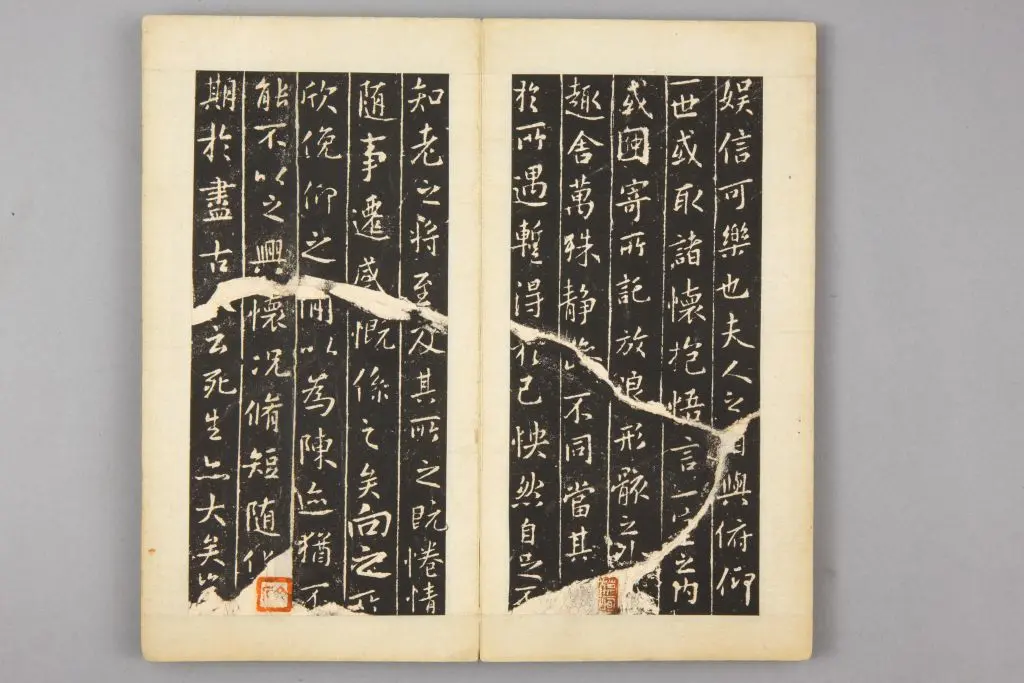 娱信可樂也夫人之與俯仰
一世或取諸懷抱悟言一室之內
或因寄所託放浪形骸之外
趣舍萬殊静不同當其
於所遇暫得於己怏然自足不
知老之將至及其所之既惓情
随事遷感慨係之矣向之所
欣俛仰之閒以為陳迹猶不
能不以之興懷况脩短随化
期於盡古云死生亦大矣豈